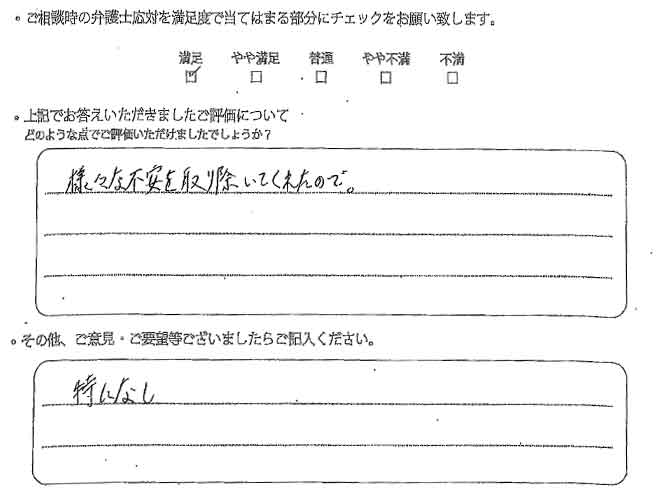 ・ご相談時の弁護士応対を満足度で当てはまる部分にチェックをお願い致します。
満足 やや満足 普通 やや不満 不満
☑ ☐ ☐ ☐ ☐
・上記でお答えいただきましたご評価について
どのような点でご評価いただけましたでしょうか？
様々な不安を取り除いてくれたので。
・その他、ご意見・ご要望等ございましたらご記入ください。
特になし